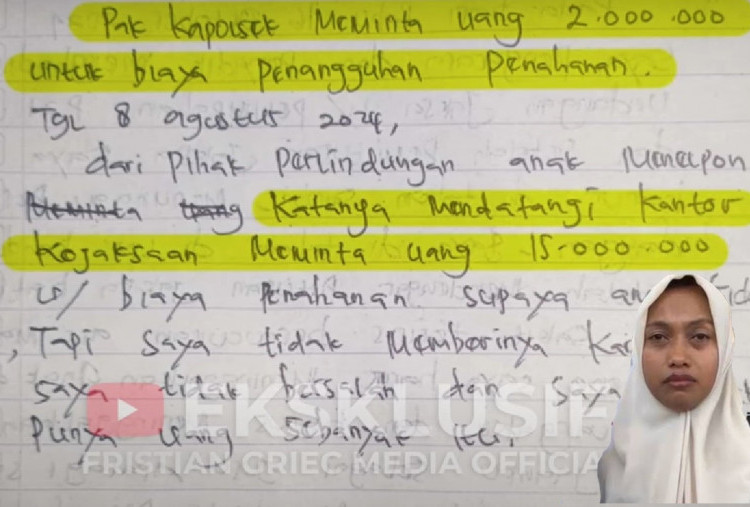 Pak Kapolsek Meminta uang 2.000.000
untuk biaya Penangguhan Penahanan.
Tgl 8 agustus 2024,
dari Pihak Perlindungan anak Menelpon
Meminta uang Katanya Mendatangi kantor
Kejaksaan Meminta uang 15.000.000
u/ biaya Penahanan supaya
, Tapi saya tidak Memberinya
saya tidak bersalah dan saya
Punya uang Sebanyak itu.
EKSKLUSIF
FRISTIAN GRIEC MEDIA OFFICIA